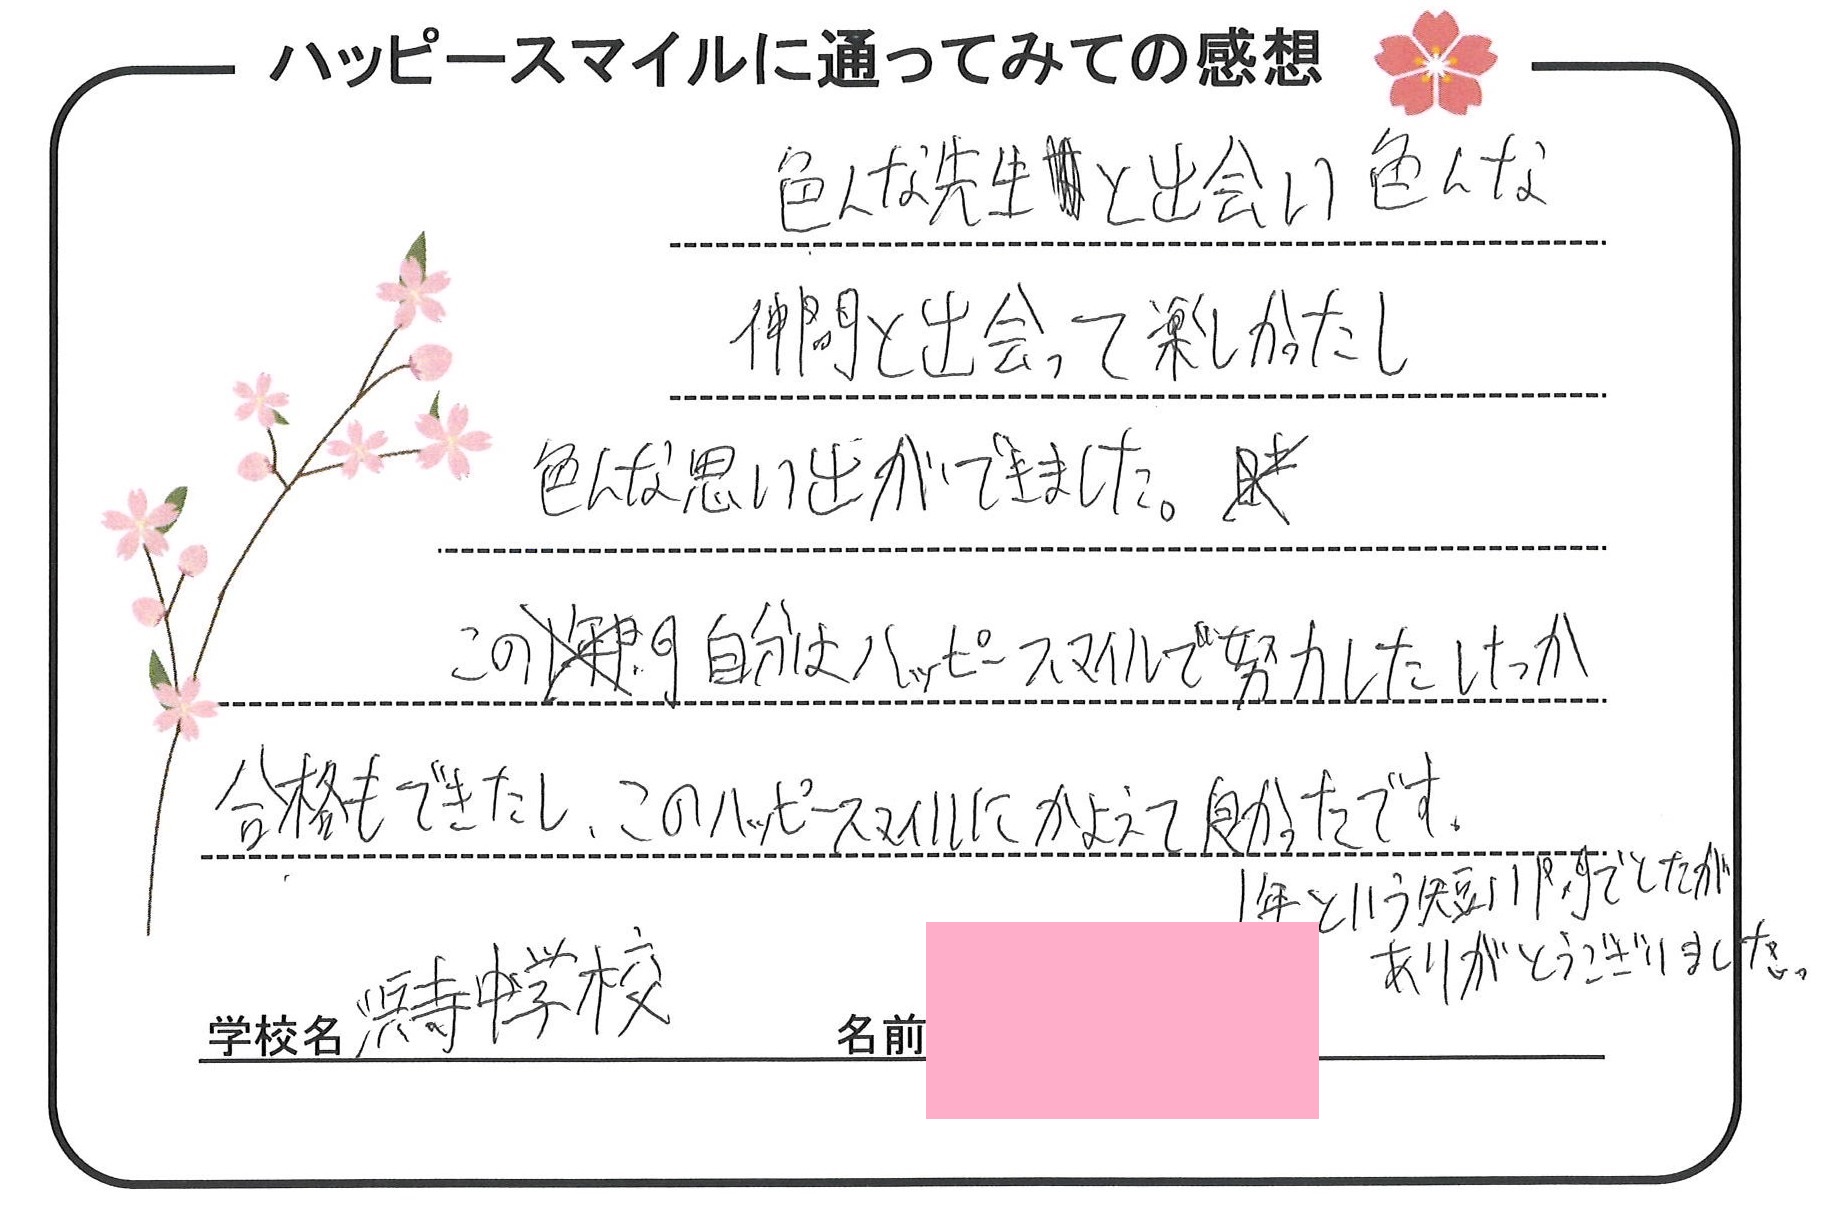 ハッピースマイルに通ってみての感想
色んな先生と出会い 色んな
仲間と出会って楽しかったし
色んな思い出ができました。
この 自分はハッピースマイルで努力したけっか
合格もできたし、このハッピースマイルにかよえて良かったです。
1年という短い間でしたが
ありがとうございました。
学校名 浜寺中学校
名前